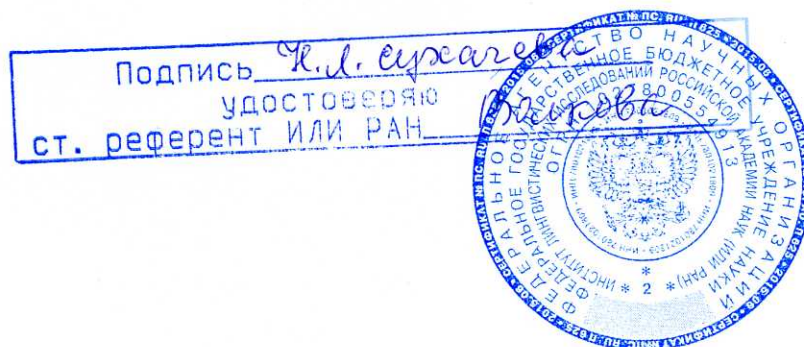 Подпись Н.Л. Сухачева
удостоверяю
ст. референт ИЛИ РАН Волкова
ФЕДЕРАЛЬНОЕ АГЕНТСТВО НАУЧНЫХ ОРГАНИЗАЦИЙ
ФЕДЕРАЛЬНОЕ ГОСУДАРСТВЕННОЕ БЮДЖЕТНОЕ УЧРЕЖДЕНИЕ НАУКИ
ИНСТИТУТ ЛИНГВИСТИЧЕСКИХ ИССЛЕДОВАНИЙ РОССИЙСКОЙ АКАДЕМИИ НАУК (ИЛИ РАН)
* 2 *